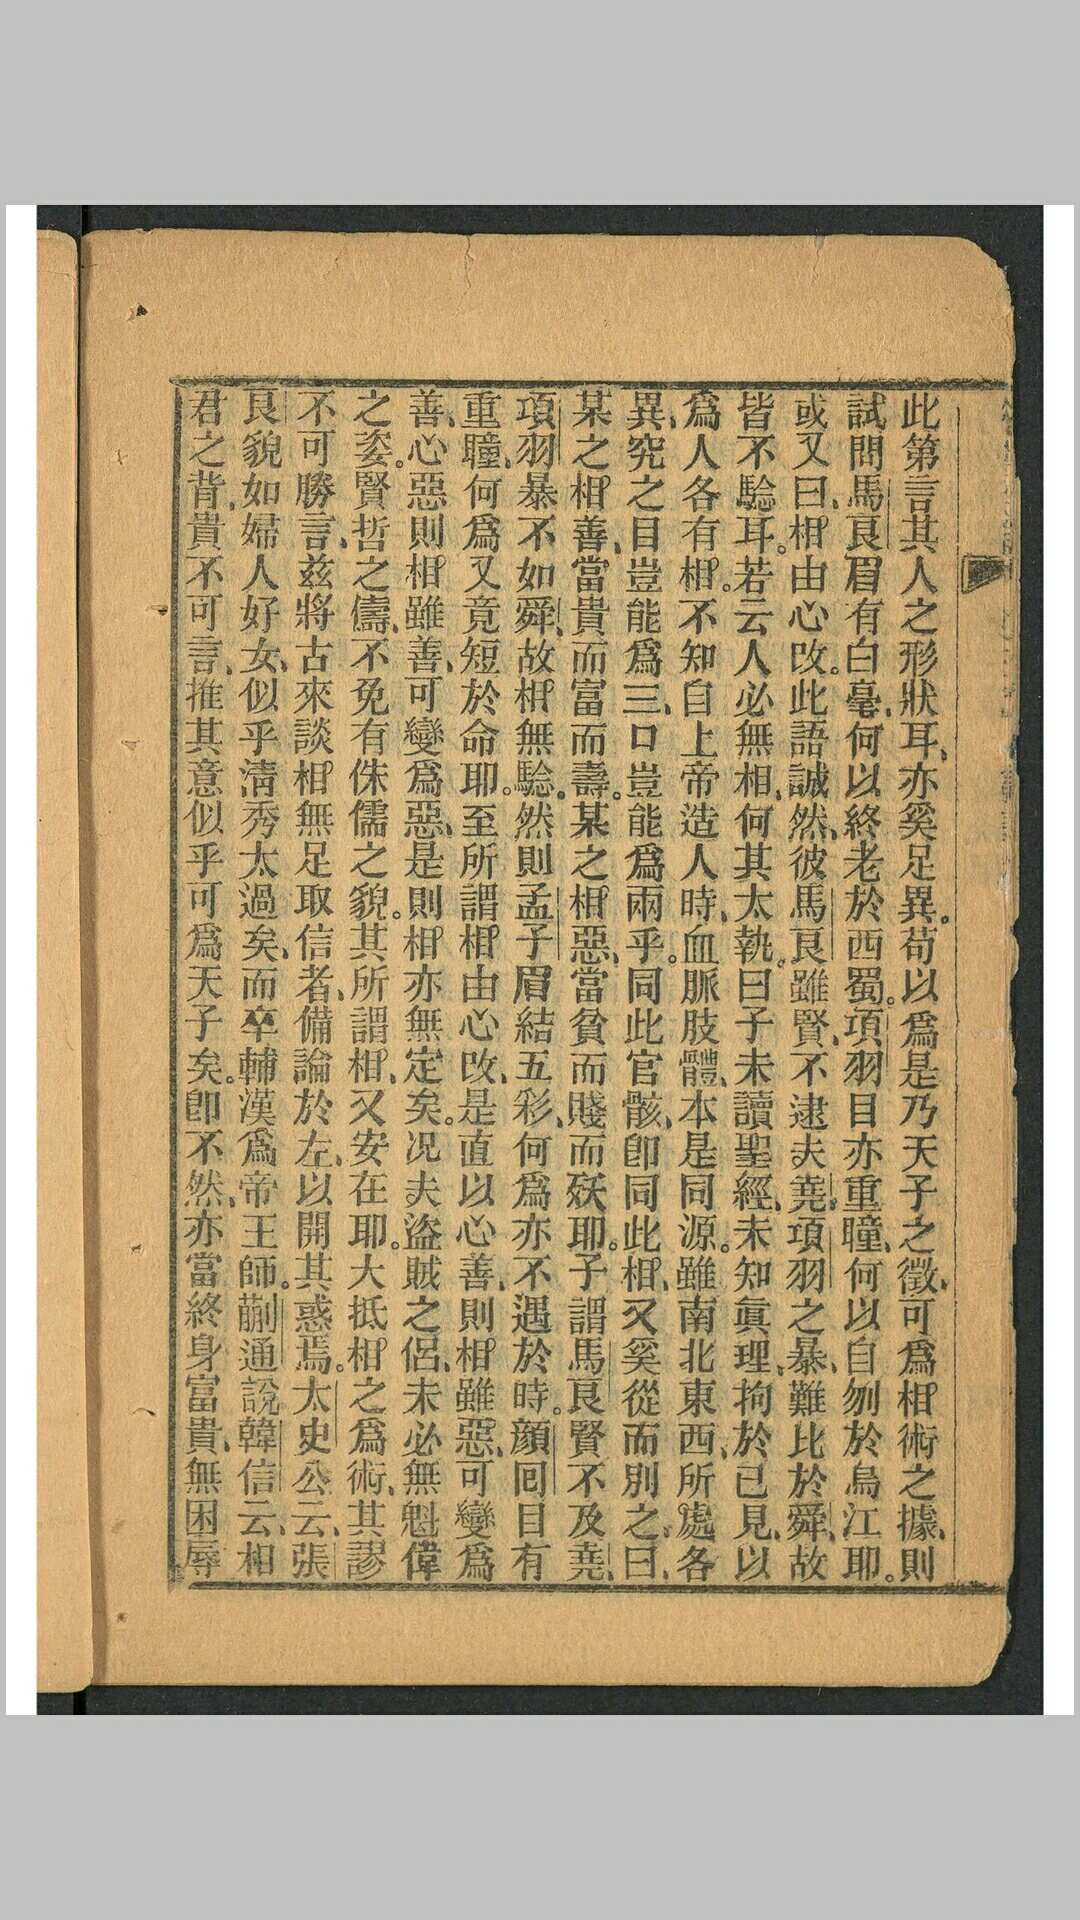 此第言其人之形狀耳、亦奚足異。苟以爲是乃天子之徵、可爲相術之據、則
試問馬良眉有白毫、何以終老於西蜀。項羽目亦重瞳、何以自刎於烏江耶。
或又曰、相由心改。此語誠然、彼馬良雖賢、不逮夫堯。項羽之暴、難比於舜、故
皆不騐耳。若云人必無相、何其太執。曰子未讀聖經、未知眞理、拘於已見、以
爲人各有相。不知自上帝造人時、血脈肢體、本是同源。雖南北東西、所處各
異、究之目豈能爲三、口豈能爲兩乎。同此官骸、卽同此相、又奚從而別之。曰、
某之相善、當貴而富而壽。某之相惡、當貧而賤而殀耶。子謂馬良賢不及堯、
項羽暴不如舜、故相無騐。然則孟子眉結五彩、何爲亦不遇於時。顔回目有
重瞳、何爲又竟短於命耶。至所謂相由心改、是直以心善、則相雖惡、可變爲
善、心惡則相雖善、可變爲惡、是則相亦無定矣。况夫盜賊之侶、未必無魁偉
之姿。賢哲之儔、不免有侏儒之貌。其所謂相、又安在耶。大抵相之爲術、其謬
不可勝言、兹將古來談相無足取信者、備論於左、以開其惑焉。太史公云、張
良貌如婦人好女、似乎淸秀太過矣、而卒輔漢爲帝王師。蒯通說韓信云、相
君之背、貴不可言、推其意似乎可爲天子矣。卽不然、亦當終身富貴、無困辱